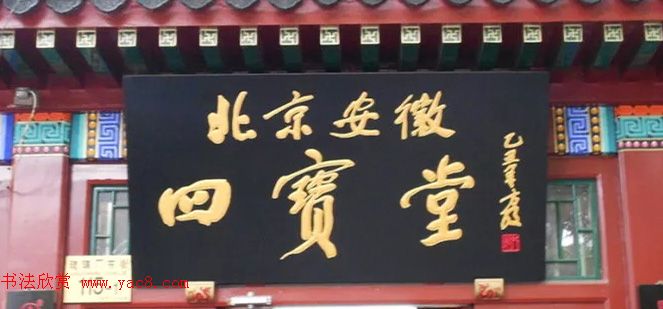 北京安徽
四寶堂
乙丑年
115
书法欣赏 www.yac8.com